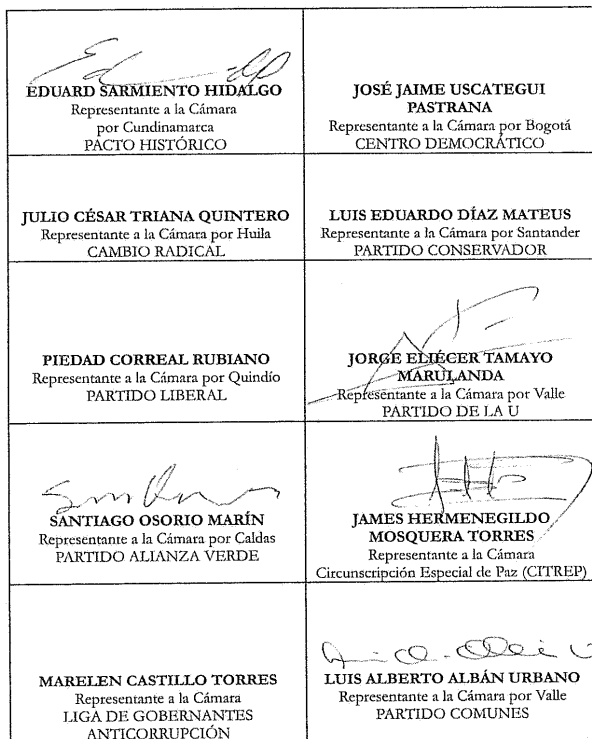 EDUARD SARMIENTO HIDALGO
Representante a la Cámara
por Cundinamarca
PACTO HISTÓRICO
JOSÉ JAIME USCATEGUI
PASTRANA
Representante a la Cámara por Bogotá
CENTRO DEMOCRÁTICO
JULIO CÉSAR TRIANA QUINTERO
Representante a la Cámara por Huila
CAMBIO RADICAL
LUIS EDUARDO DÍAZ MATEUS
Representante a la Cámara por Santander
PARTIDO CONSERVADOR
PIEDAD CORREAL RUBIANO
Representante a la Cámara por Quindío
PARTIDO LIBERAL
JORGE ELIÉCER TAMAYO
MARULANDA
Representante a la Cámara por Valle
PARTIDO DE LA U
SANTIAGO OSORIO MARÍN
Representante a la Cámara por Caldas
PARTIDO ALIANZA VERDE
JAMES HERMENEGILDO
MOSQUERA TORRES
Representante a la Cámara
Circunscripción Especial de Paz (CITREP)
MARELEN CASTILLO TORRES
Representante a la Cámara
LIGA DE GOBERNANTES
ANTICORRUPCIÓN
LUIS ALBERTO ALBÁN URBANO
Representante a la Cámara por Valle
PARTIDO COMUNES